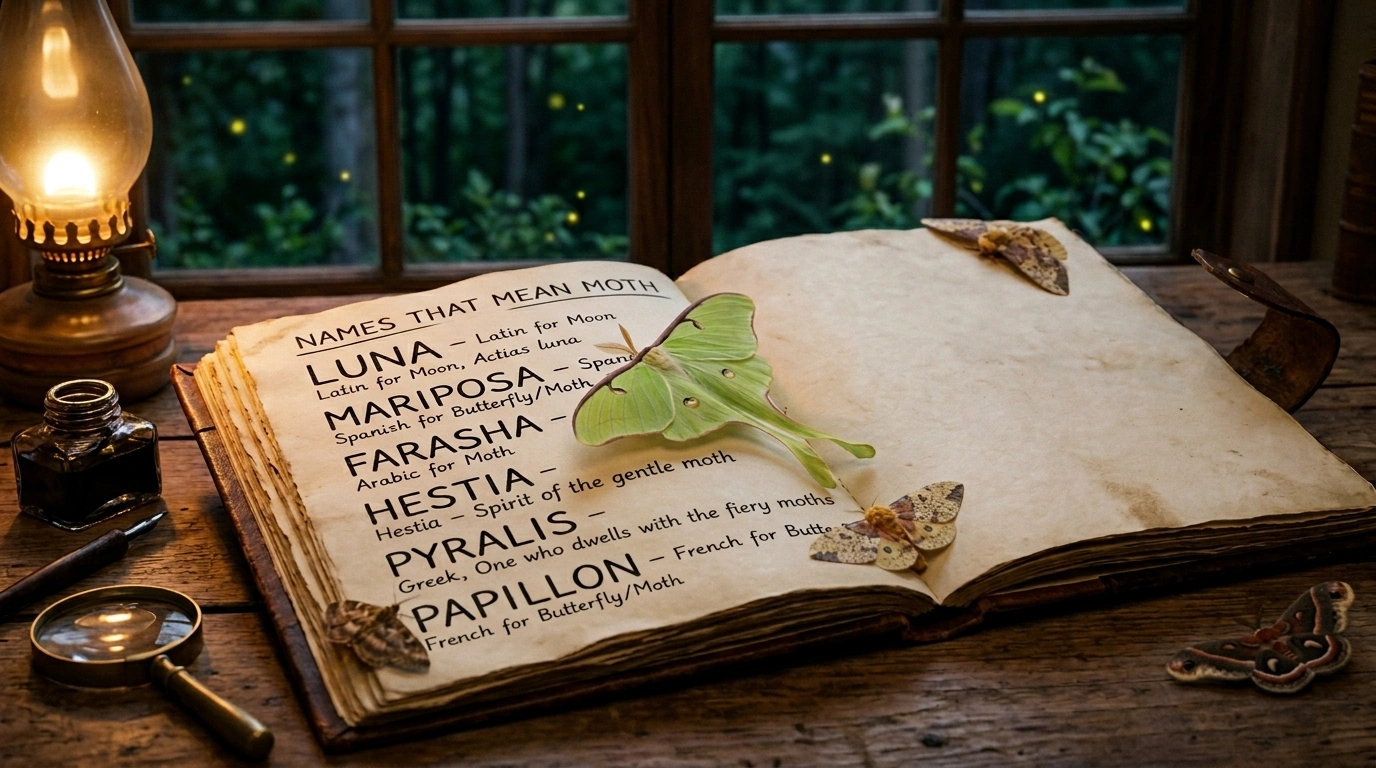 NAMES THAT MEAN MOTH
LUNA – Latin for Moon
Latin for Moon, Actias luna
MARIPOSA –
Spanish for Butterfly/Moth
FARASHA –
Arabic for Moth
HESTIA –
Hestia – Spirit of the gentle moth
PYRALIS –
Greek, One who dwells with the fiery moths
PAPILLON – French for
French for Butterfly/Moth